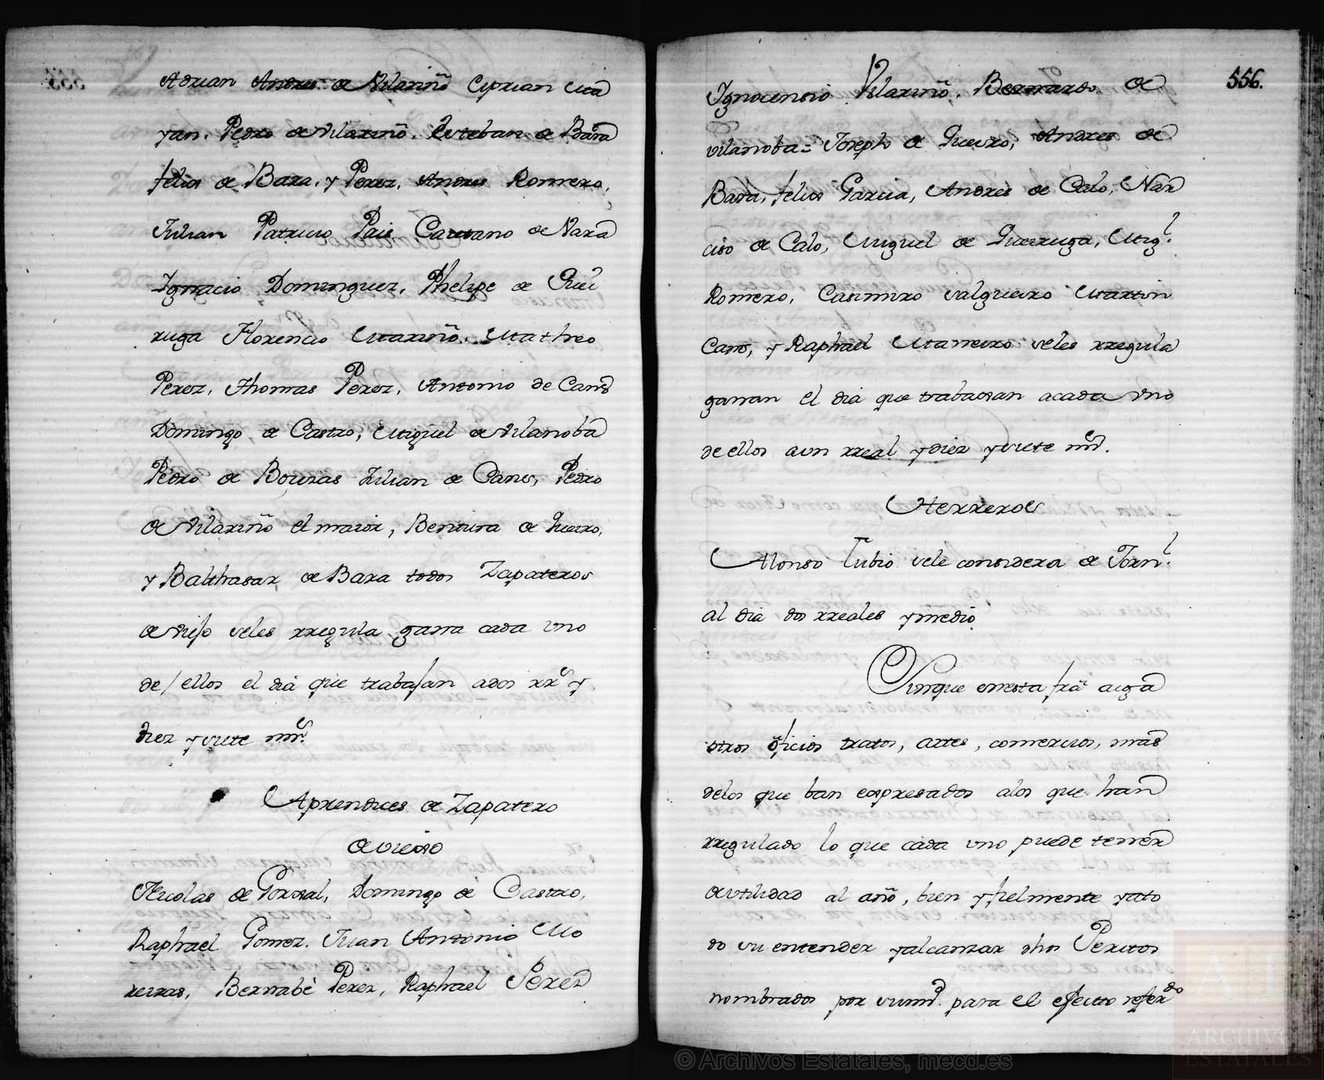 Adrian Andres de Vilariño Ciprian Cita
yan. Pedro de Vilariño. Esteban de Bara
felis de Bara. y Perez. Andres Romero,
Julian Patricio Pais Caetano de Nara
Ignacio Dominguez, Phelipe de Quei
ruga Florencio Mariño. Matheo
Perez, Thomas Perez, Antonio de Cans
Domingo de Castro, Miguel de Vilanoba
Pedro de Bouzas Julian de Cans, Pedro
de Vilariño el maior, Bentura de Queiro,
y Balthasar de Bara todos Zapateros
de viejo seles rregula gana cada vno
de ellos el dia que trabajan ados rrs y
diez ysiete mrs.
Aprendices de Zapatero
de viejo
Nicolas de Porral, Domingo de Castro,
Raphael Gomez. Juan Antonio Mo
reiras, Bernabè Perez, Raphael Perez
556.
Ignocensio Vilariño. Bernardo de
Vilanoba= Joseph de Queiro, Andres de
Bara, felis Garcia, Andres de Calo, Nar
ciso de Calo, Miguel de Queiruga, Migl.
Romero, Casimiro salgueiro Martin
Cans, y Raphael Maneiro seles rregula
ganan el dia que trabaxan acada vno
de ellos aun rreal ydiez ysiete mrs.
Herreros
Alonso Rubio sele considera de Jornl.
al dia dos rreales ymedio
Aunque enesta fra aiga
otros oficios tratos, artes, comercios, mas
delos que ban expresados alos que han
rregulado lo que cada vno puede tenner
de utilidad al año, bien yfielmente yato
do su entender yalcanzar dhos Peritos
nombrados por sumd. para el efecto referdo
© Archivos Estatales, mecd.es
ARCHIVOS
ESTATALES